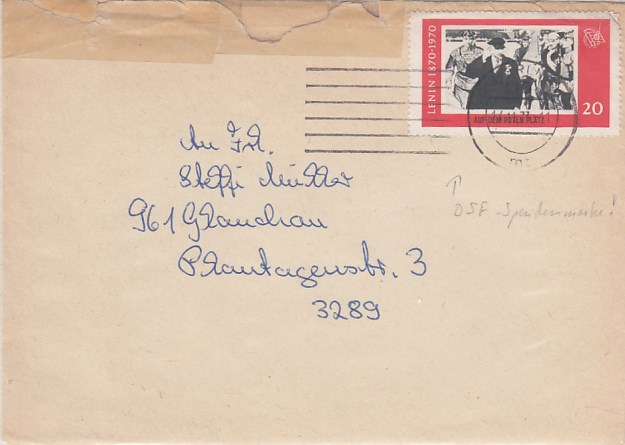 LENIN 1870-1970
AUF DEM ROTEN PLATZ
20
An Frl.
Steffi Müller
961 Glauchau
Plantagenstr. 3
3289
DSF-Spendenmarke!